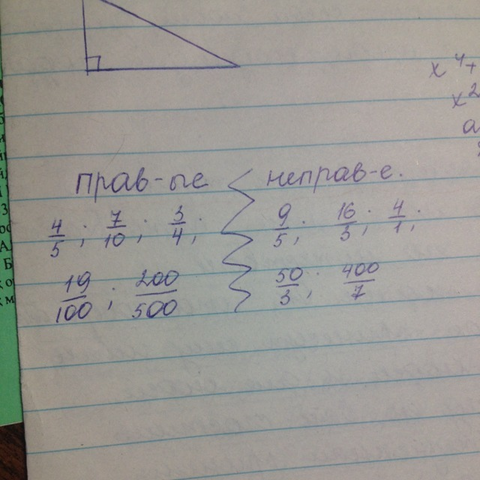 x⁴+
x²
a
прав-ые неправ-е.
4/5; 7/10; 3/4; 9/5; 16/3; 4/1;
19/100; 200/500 50/3; 400/7